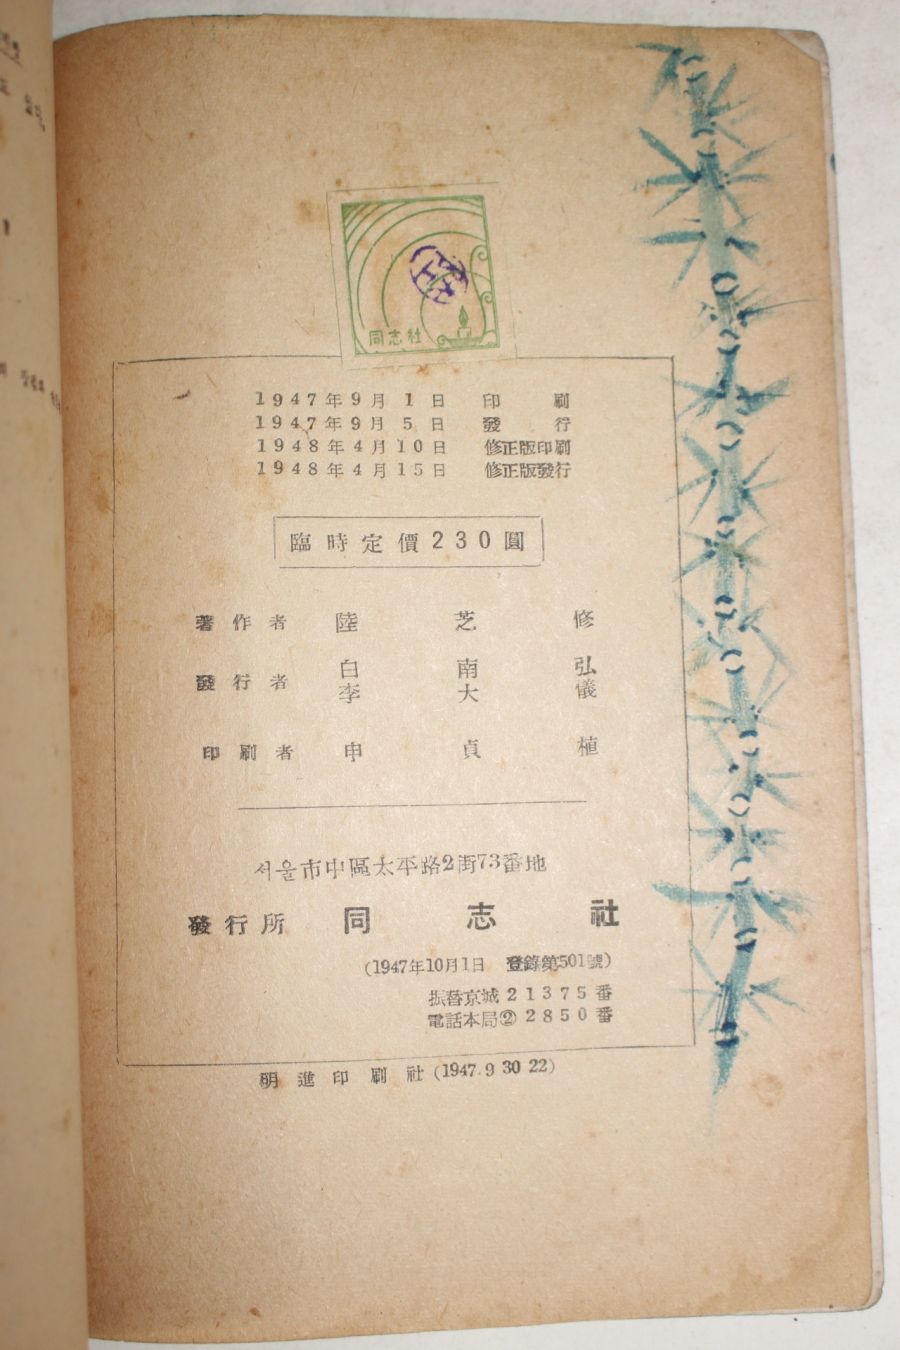 同志社
1947年9月1日 印刷
1947年9月5日 發行
1948年4月10日 修正版印刷
1948年4月15日 修正版發行
臨時定價230圓
著作者 陸芝修
發行者 白南弘
李大儀
印刷者 申貞植
서울市中區太平路2街73番地
發行所 同志社
(1947年10月1日 登錄第501號)
振替京城21375番
電話本局②2850番
明進印刷社(1947.9 30 22)